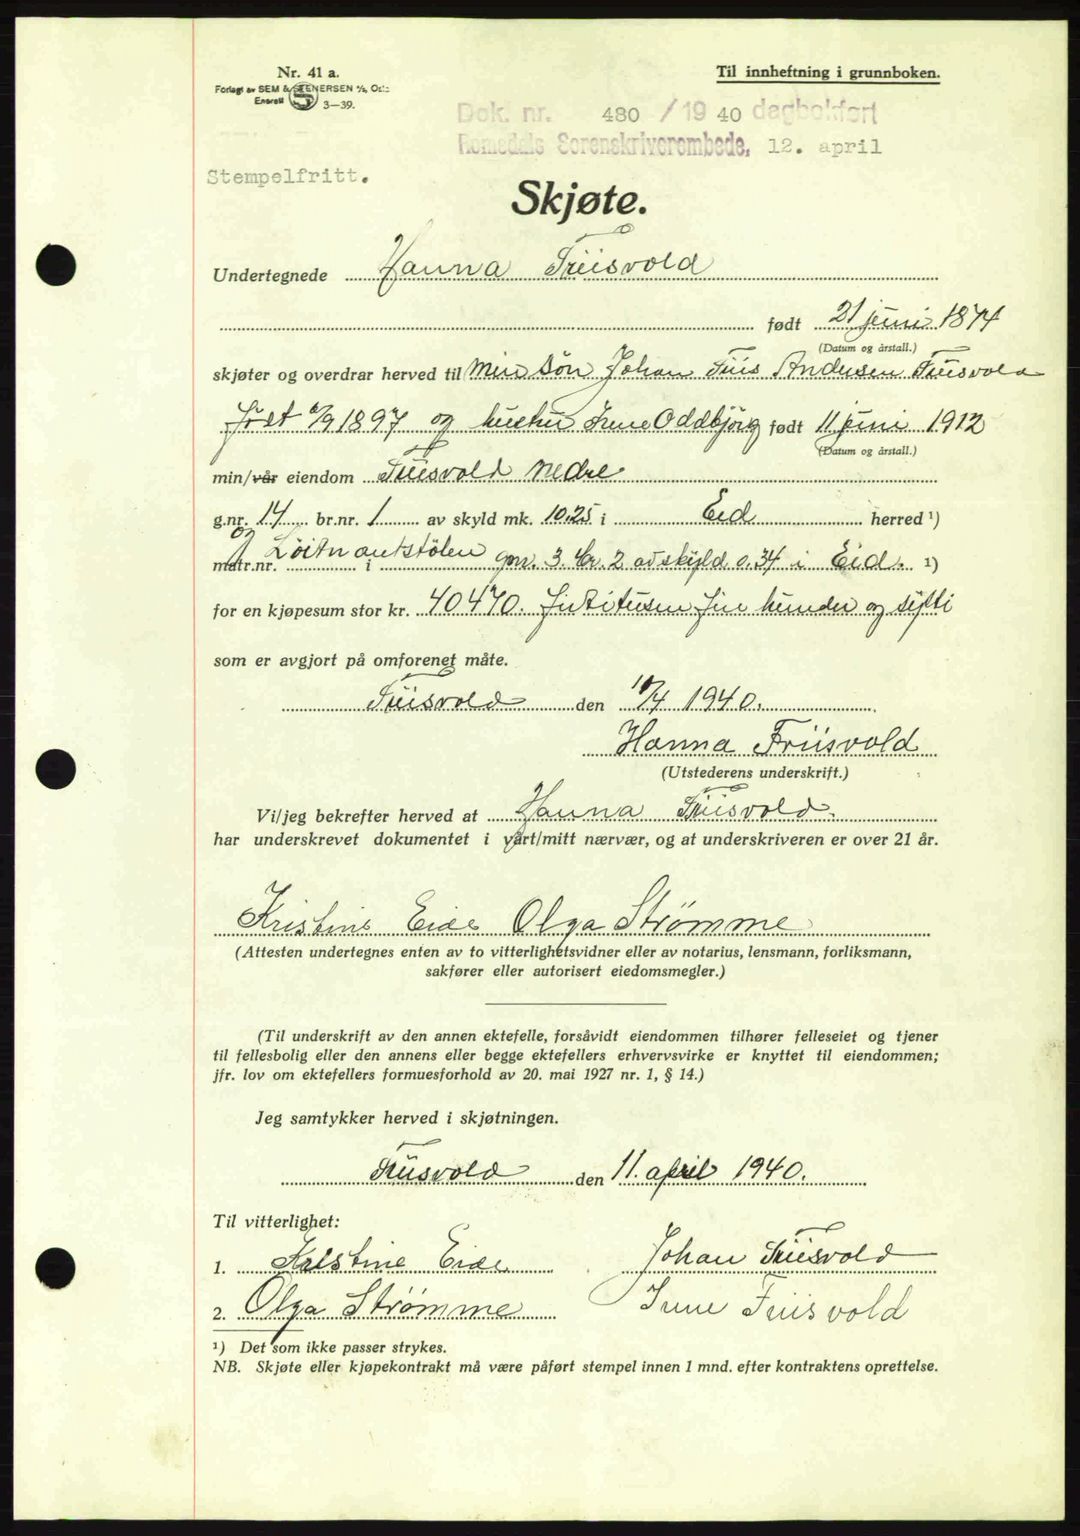 Nr. 41 a.
Til innheftning i grunnboken.
Forlagt av SEM & STENERSEN A/S, Oslo
Enerett 3—39.
Dok. nr. 480 / 19 40 dagbokført
Romsdals Sorenskriverembede, 12. april
Stempelfritt.
Skjøte.
Undertegnede Hanna Friisvold
født 21 juni 1874
(Datum og årstall.)
skjøter og overdrar herved til min søn Johan Friis Andersen Friisvold
født /9 1897 og hustru Irene Oddbjörg født 11 juni 1912
(Datum og årstall.)
min/vår eiendom Friisvold nedre
g.nr. 14 br.nr. 1 av skyld mk. 10.25 i Eid herred ¹)
og Löitnantstölen gnr. 3. br. 2 av skyld 0.34 i Eid. ¹)
matr.nr. i
for en kjøpesum stor kr. 40470. firtitusen fire hundre og sytti
som er avgjort på omforenet måte.
Friisvold den 11/4 1940.
Hanna Friisvold
(Utstederens underskrift.)
Vi/jeg bekrefter herved at Hanna Friisvold.
har underskrevet dokumentet i vårt/mitt nærvær, og at underskriveren er over 21 år.
Kristine Eide Olga Strømme
(Attesten undertegnes enten av to vitterlighetsvidner eller av notarius, lensmann, forliksmann,
sakfører eller autorisert eiedomsmegler.)
(Til underskrift av den annen ektefelle, forsåvidt eiendommen tilhører felleseiet og tjener
til fellesbolig eller den annens eller begge ektefellers erhvervsvirke er knyttet til eiendommen;
jfr. lov om ektefellers formuesforhold av 20. mai 1927 nr. 1, § 14.)
Jeg samtykker herved i skjøtningen.
Friisvold den 11. april 1940.
Til vitterlighet:
1. Kristine Eide Johan Friisvold
2. Olga Strömme Irene Friisvold
¹) Det som ikke passer strykes.
NB. Skjøte eller kjøpekontrakt må være påført stempel innen 1 mnd. efter kontraktens oprettelse.